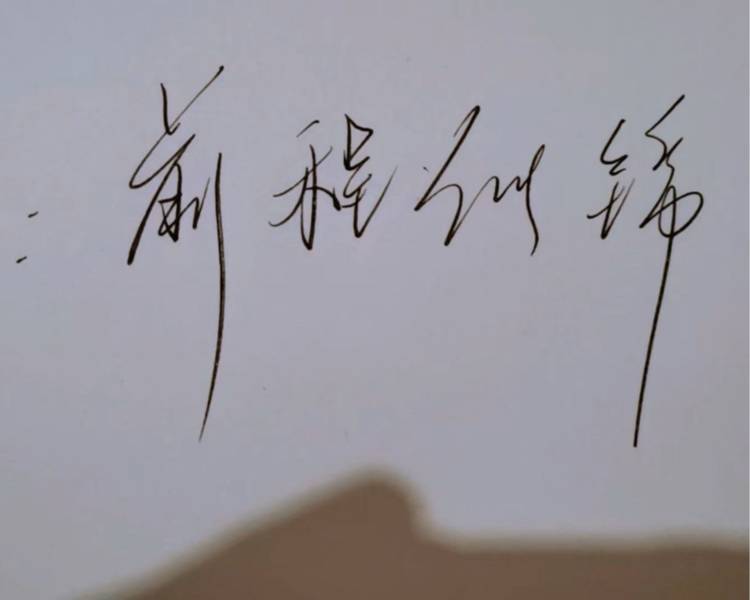 ：前程似锦